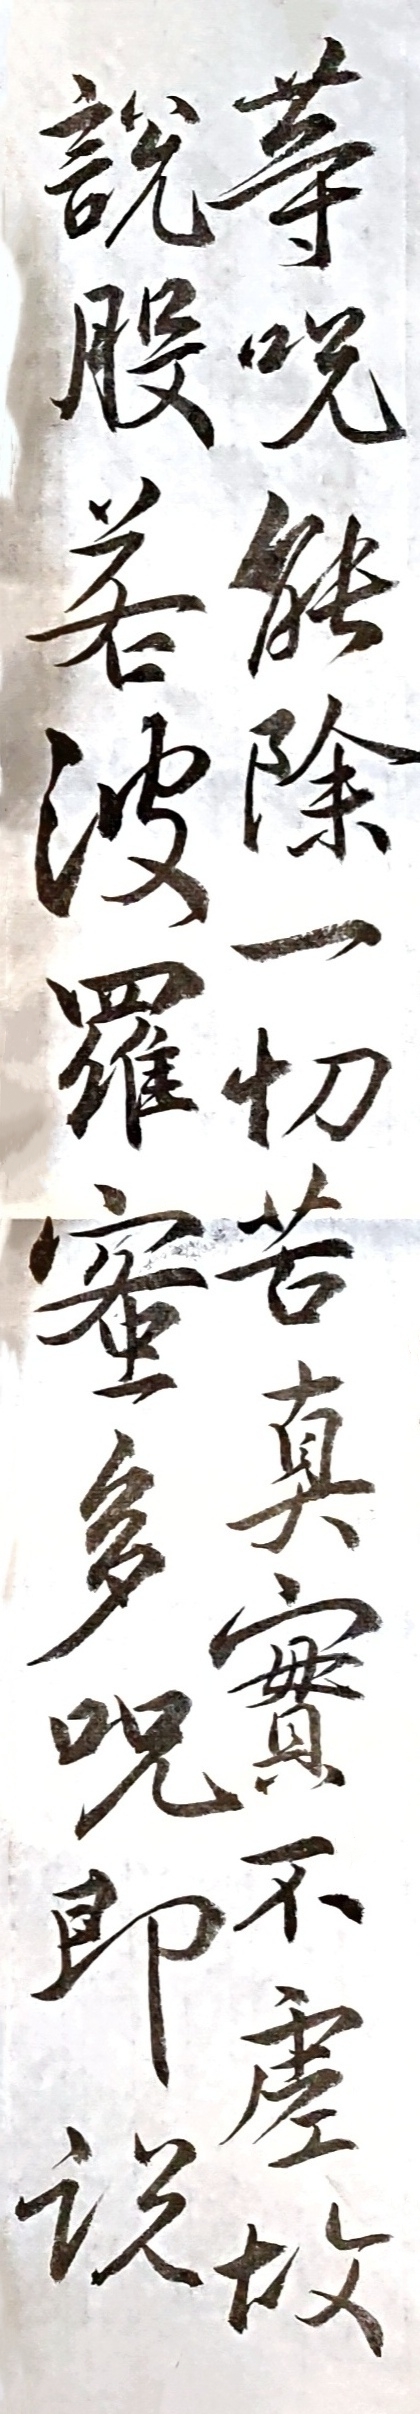 等呪能除一切苦真實不虛故
說般若波羅蜜多呪即説